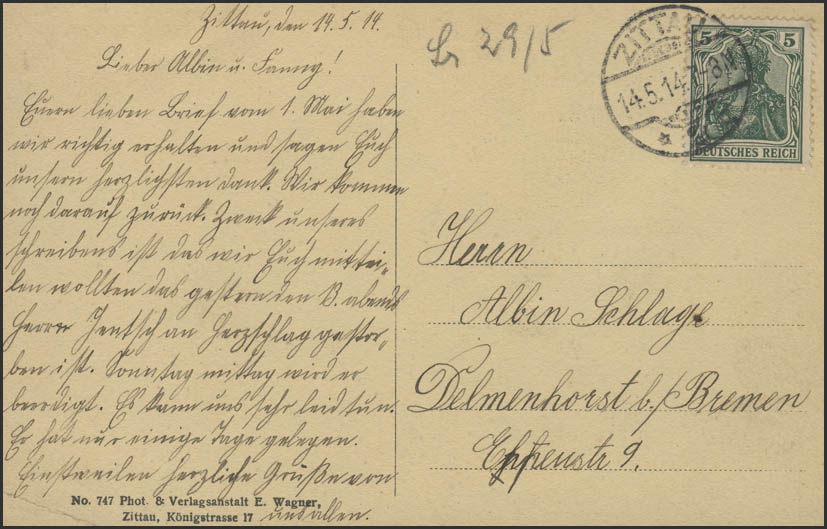 Zittau, den 14.5.14.
Lieber Albin u. Fanny!
Euern lieben Brief vom 1. Mai haben
wir richtig erhalten und sagen Euch
unsern herzlichsten Dank. Wir kommen
noch darauf zurück. Zweck unseres
schreibens ist das wir Euch mittei-
len wollten das gestern den 13. abends
Herrn Jentsch an Herzschlag gestor-
ben ist. Sonntag mittag wird er
beerdigt. Es kann uns sehr leid tun.
Er hat nur einige Tage gelegen.
Einstweilen herzliche Grüße von
uns allen.
No. 747 Phot. & Verlagsanstalt E. Wagner,
Zittau, Königstrasse 17
29/5
ZITTAU
14.5.14.
5 5
DEUTSCHES REICH
Herrn
Albin Schlage
Delmenhorst b./Bremen
9.